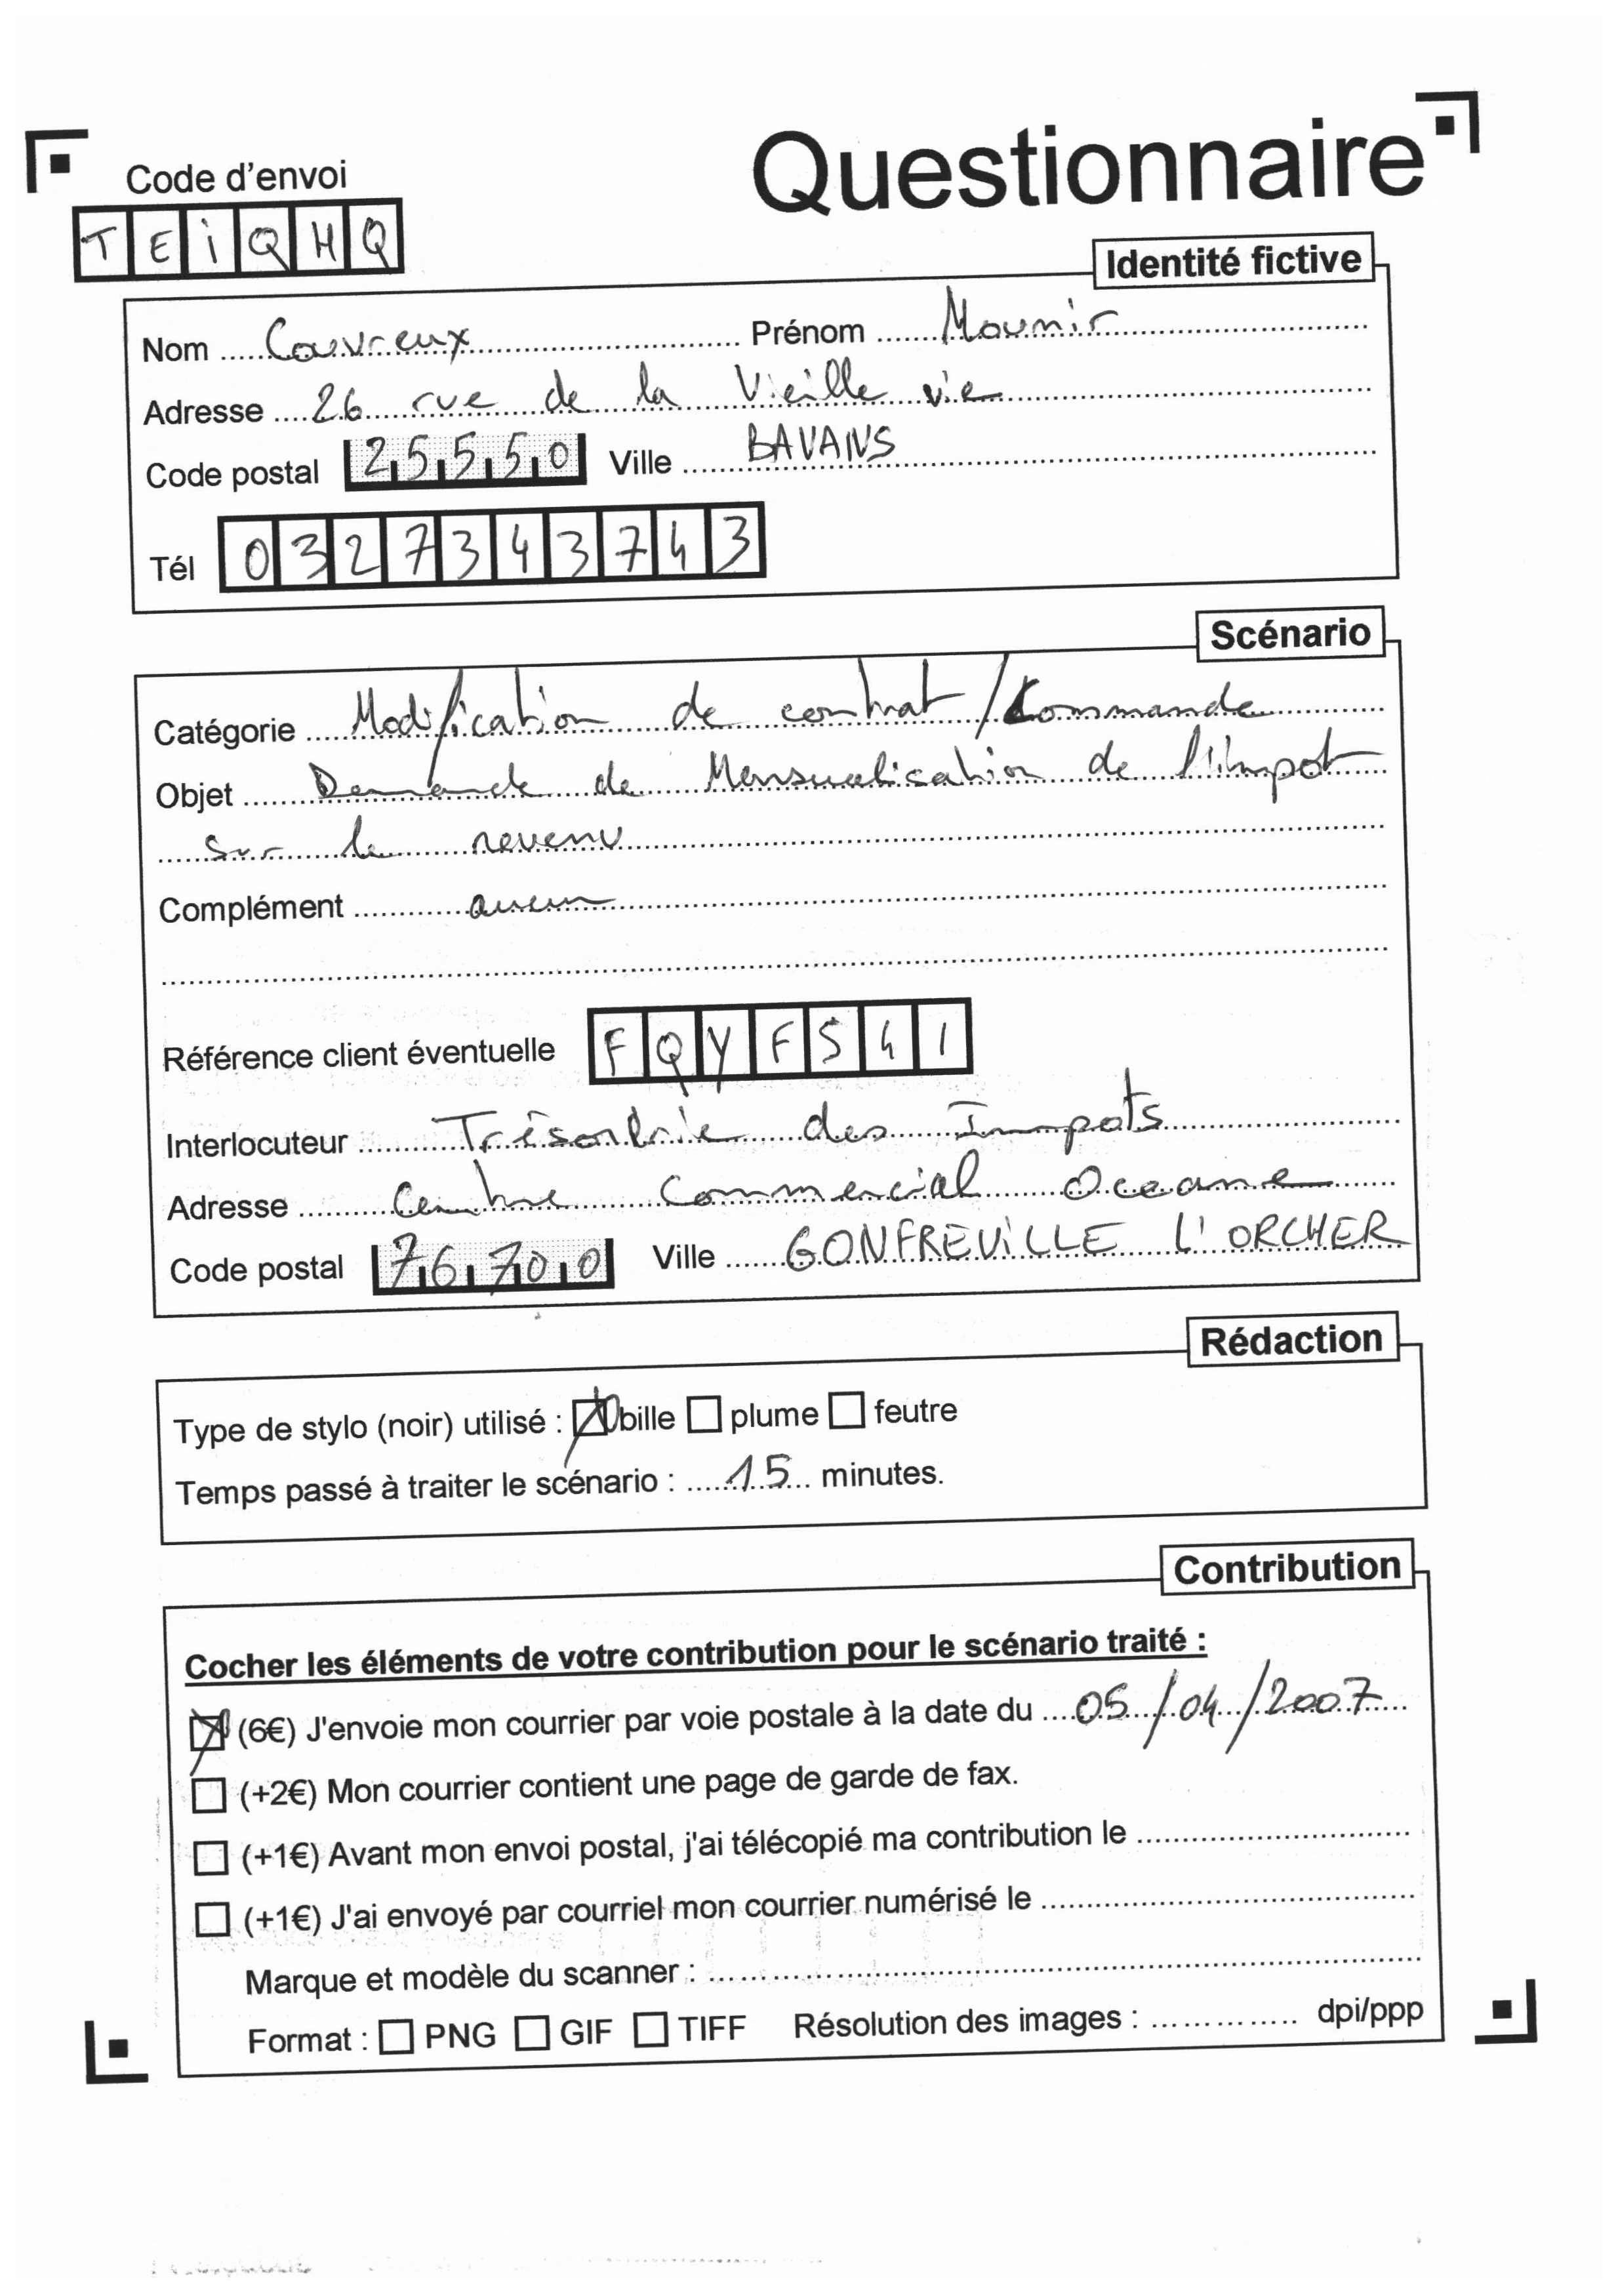 Questionnaire
Code d'envoi
TEiQHQ
Identité fictive
Nom Couvreux Prénom Mounir
Adresse 26 rue de la Vieille vie
Code postal 25550 Ville BAVANS
Tél 0327343743
Scénario
Catégorie Modification de contrat / Commande
Objet Demande de Mensualisation de l'impot
sur le revenu
Complément aucun
Référence client éventuelle FQYFS41
Interlocuteur des Impots
Adresse Centre Commercial Oceane
Code postal 76700 Ville GONFREViLLE L'ORCHER
Rédaction
Type de stylo (noir) utilisé : bille plume feutre
Temps passé à traiter le scénario : 15 minutes.
Contribution
Cocher les éléments de votre contribution pour le scénario traité :
(6€) J'envoie mon courrier par voie postale à la date du 05/04/2007
(+2€) Mon courrier contient une page de garde de fax.
(+1€) Avant mon envoi postal, j'ai télécopié ma contribution le
(+1€) J'ai envoyé par courriel mon courrier numérisé le
Marque et modèle du scanner :
Format : PNG GIF TIFF Résolution des images : dpi/ppp